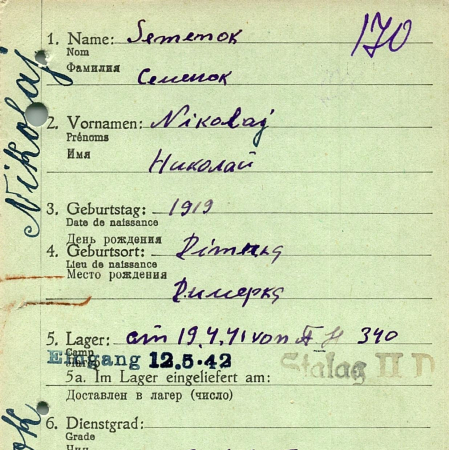 170
1. Name: Semenok
Nom
Фамилия
Семенок
Nikolaj
2. Vornamen: Nikolaj
Prénoms
Имя
Николай
3. Geburtstag: 1919
Date de naissance
День рождения
4. Geburtsort:
Lieu de naissance
Место рождения
Димерка
5. Lager: am 19.4.41 von 340
Camp
Eingang 12.5.42 Stalag II D
5a. Im Lager eingeliefert am:
Доставлен в лагерь (число)
6. Dienstgrad:
Grade
Чин